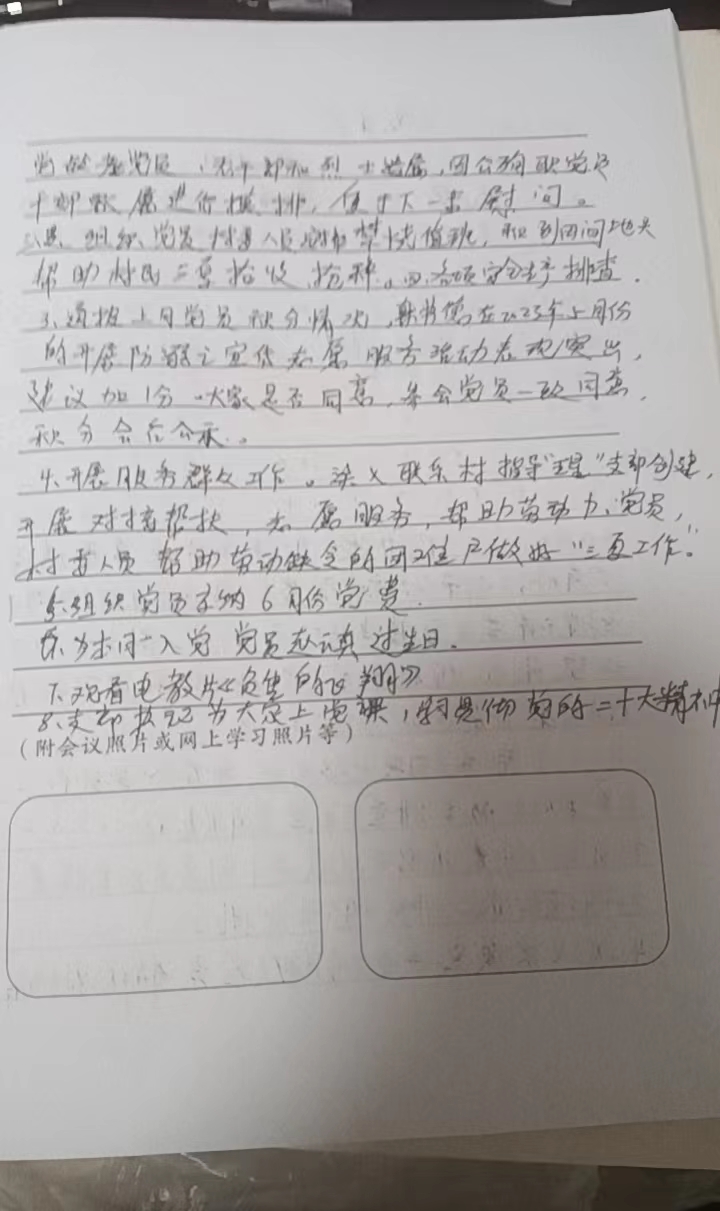 党员、老干部和烈士遗属，因公殉职党员
干部家属进行摸排，便于下一步慰问。
组织党员村委人员安排禁烧值班，和到田间地头
帮助村民三夏抢收抢种。四、各项安全生产排查。
3、通报上月党员积分情况，在2023年5月份
的开展防溺亡宣传志愿服务活动表现突出，
建议加1分，大家是否同意，参会党员一致同意，
积分会后公示。
4、开展服务群众工作。联系村指导"五星"支部创建，
开展对接帮扶，志愿服务，帮助劳动力、党员，
村委人员帮助劳动缺乏的困难户做好"三夏工作"。
5、组织党员交纳6月份党费.
6、为本月入党党员过生日.
7、观看电教片《的飞翔》
8、支部书记为大家上党课，的二十大精神
（附会议照片或网上学习照片等）